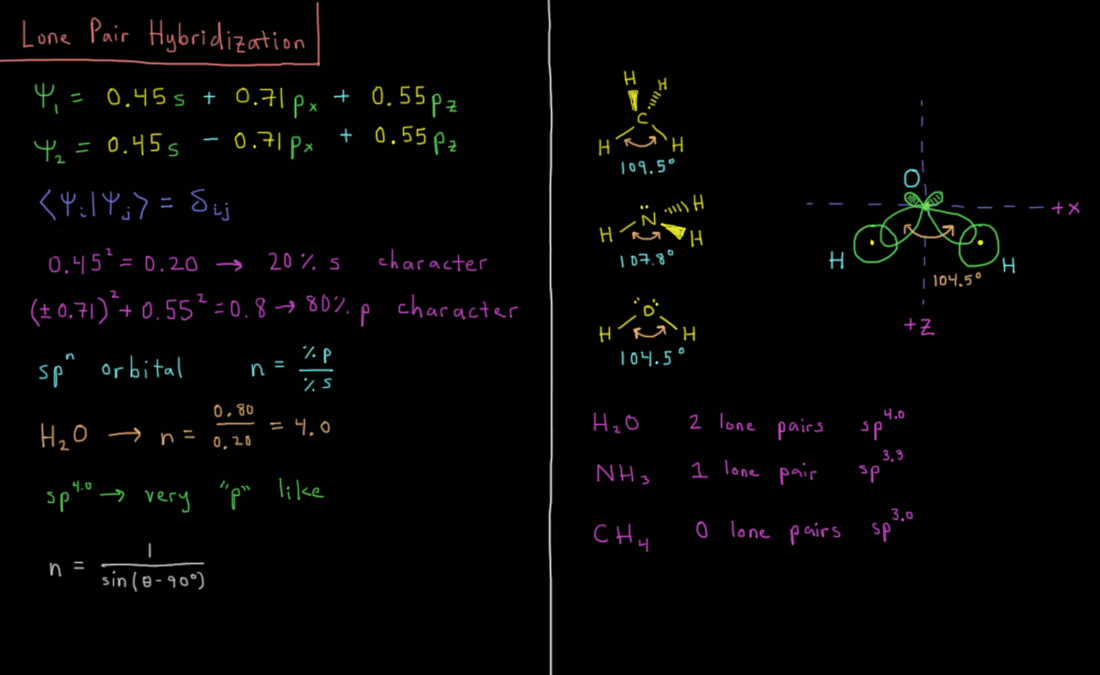 Lone Pair Hybridization
Ψ₁ = 0.45s + 0.71pₓ + 0.55p_z
Ψ₂ = 0.45s - 0.71pₓ + 0.55p_z
⟨Ψᵢ|Ψⱼ⟩ = δᵢⱼ
0.45² = 0.20 → 20% s character
(±0.71)² + 0.55² = 0.8 → 80% p character
spⁿ orbital n = %p / %s
H₂O → n = 0.80 / 0.20 = 4.0
sp⁴·⁰ → very "p" like
n = 1 / sin(θ-90°)
H H
C
H H
109.5°
H
H N
H
107.8°
O
H H
104.5°
O
+x
H H
104.5°
+z
H₂O 2 lone pairs sp⁴·⁰
NH₃ 1 lone pair sp³·³
CH₄ 0 lone pairs sp³·⁰